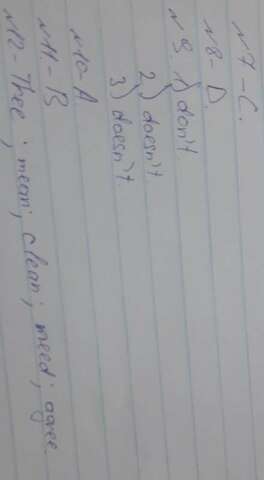 №7 - C.
№8 - D.
№9. 1) don't.
2) doesn't.
3) doesn't.
№10 - A.
№11. - B
№12 - Thee; mean; clean; meed; agree.